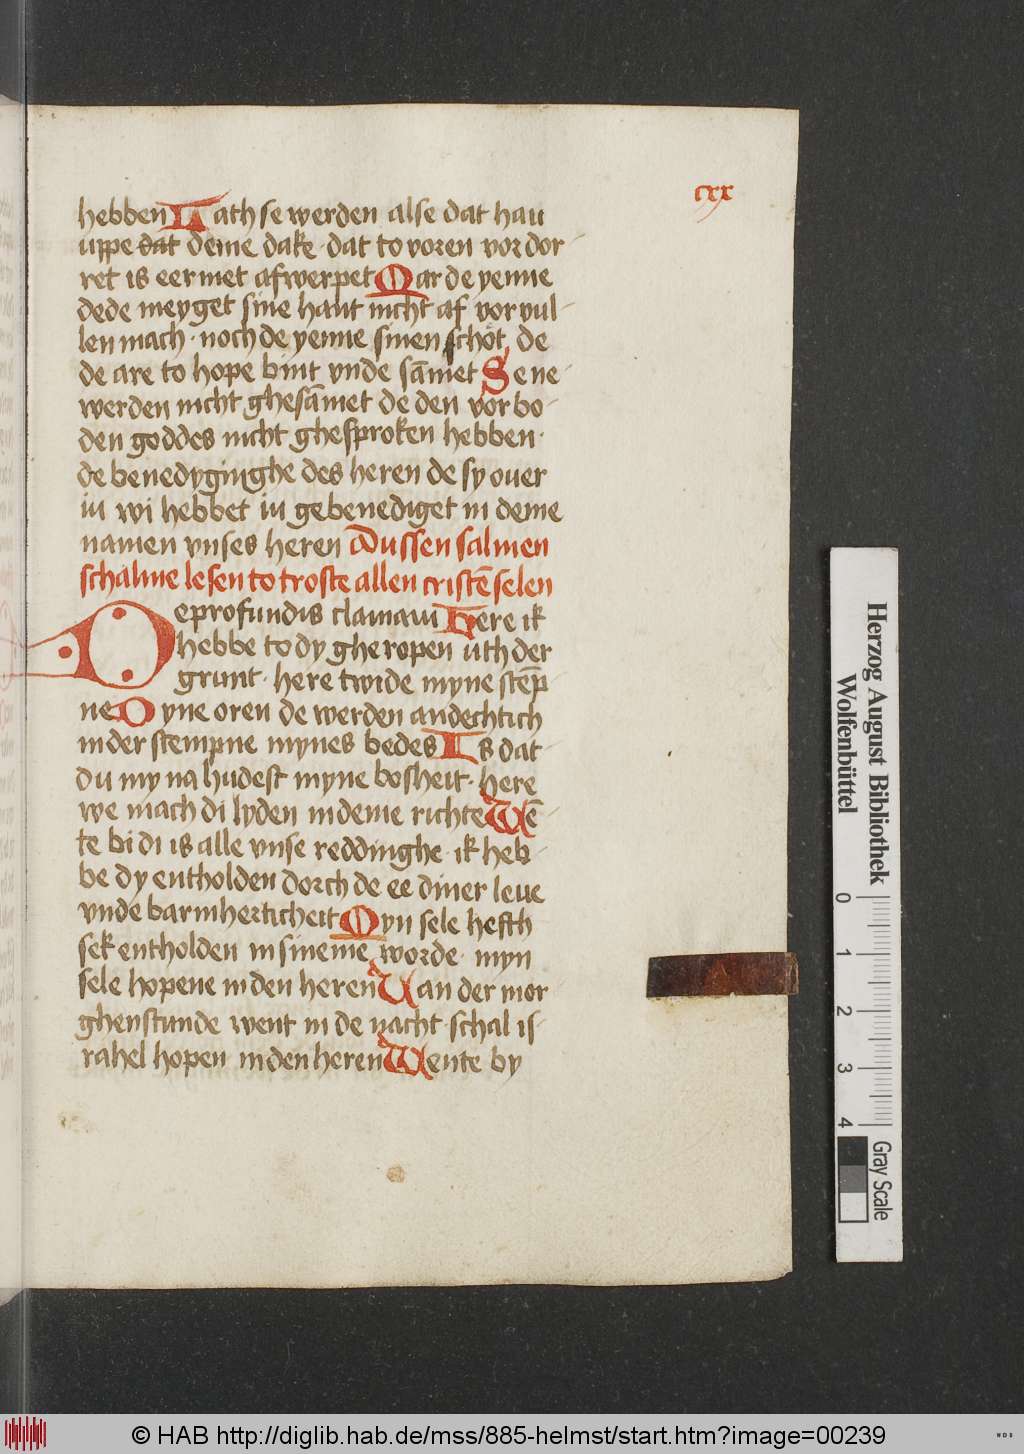 cxx
hebben Lath se werden alse dat hau
uppe dat deme dake · dat to voren vor dor
ret is eer met afwerpet Dar de yenne
dede meyget sine hant nicht af vor vul
len mach · noch de yenne sinen schot, de
de are to hope bint vnde sāmet Se ne
werden nicht ghesāmet de den vor bo
den goddes nicht ghesproken hebben ·
de benedyginghe des heren de sy ouer
iu wi hebbet iu gebenediget in deme
namen vnses heren Dussen salmen
schalme lesen to troste allen cristē selen
De profundis clamaui Here ik
hebbe to dy gheropen uth der
grunt · here twide myne stēp
ne Dyne oren de werden andechtich
in der stempne mynes bedes Is dat
du my na hudest myne bosheit · here
we mach di lyden in deme richte Wē
te bi di is alle vnse reddinghe · ik heb
be dy entholden dorch de ee diner leue
vnde barmherticheit Myn sele hefth
sek entholden in sineme worde · myn
sele hopene in den heren Van der mor
ghenstunde went in de nacht · schal is
rahel hopen in den heren Wente by
Herzog August Bibliothek
Wolfenbüttel
0 1 2 3 4
Gray Scale
© HAB http://diglib.hab.de/mss/885-helmst/start.htm?image=00239
HAB